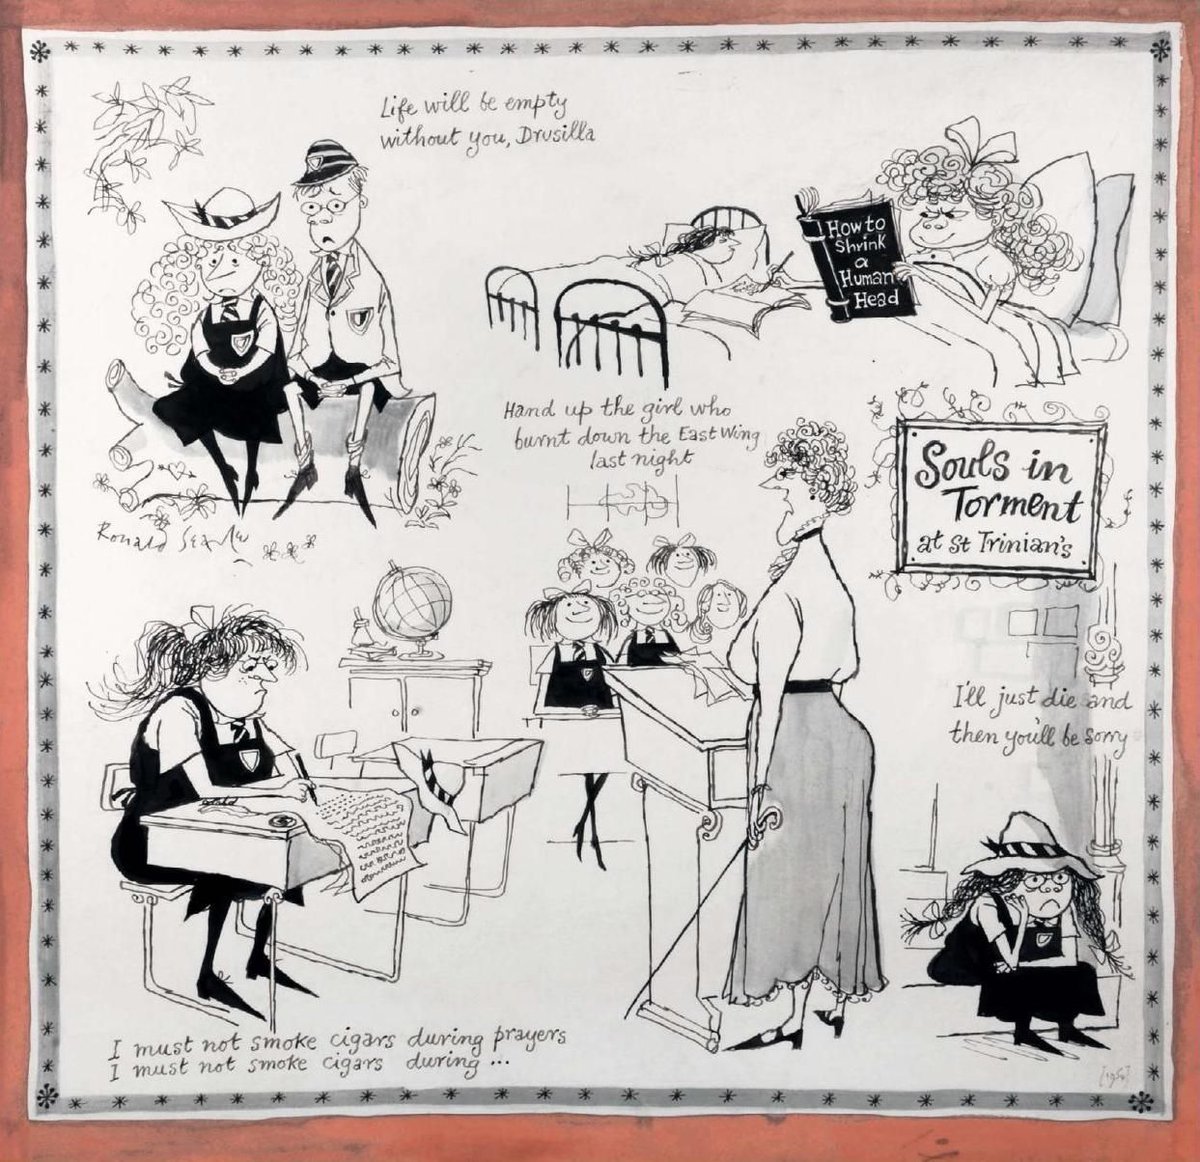 Life will be empty
without you, Drusilla
How to
Shrink
a
Human
Head
Hand up the girl who
burnt down the East Wing
last night
Souls in
Torment
at St Trinian's
Ronald Searle
I'll just die and
then you'll be sorry
I must not smoke cigars during prayers
I must not smoke cigars during ...